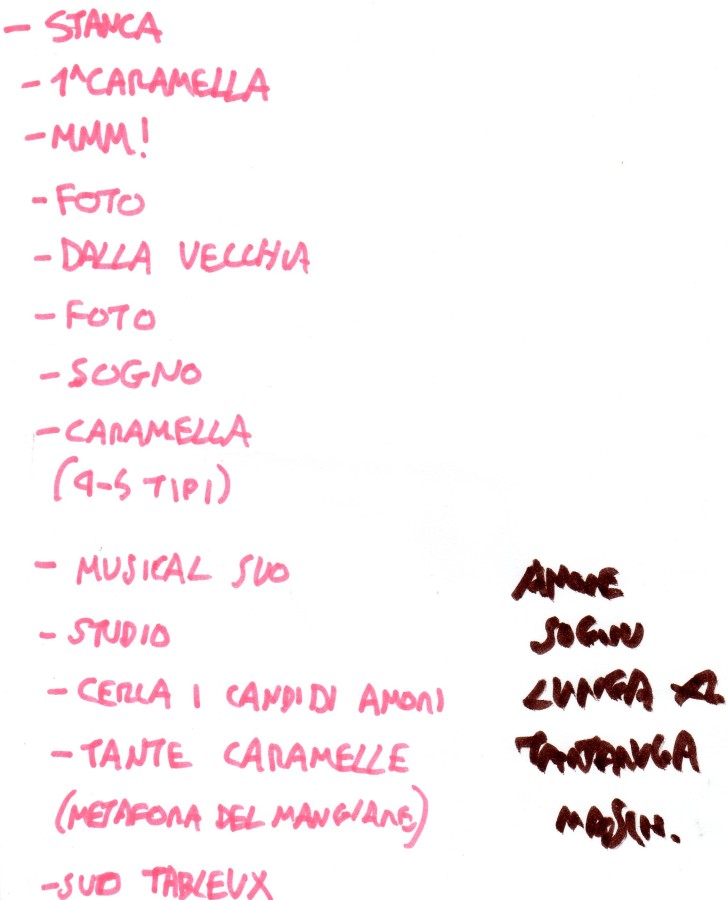 - STANCA
- 1^CARAMELLA
- MMM!
- FOTO
- DALLA VECCHIA
- FOTO
- SOGNO
- CARAMELLA
(4-5 TIPI)
- MUSICAL SUO
- STUDIO
- CERCA I CANDIDI AMORI
- TANTE CARAMELLE
(METAFORA DEL MANGIARE)
- SUO TABLEUX
AMORE
SOGNO
LUNGA
TARTARUGA